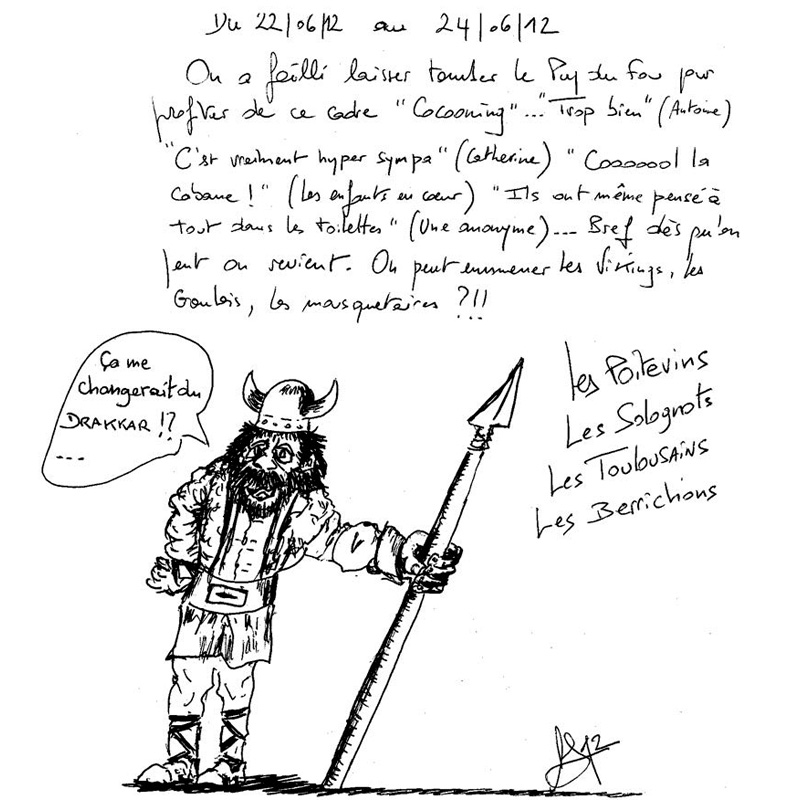 Du 22/06/12 au 24/06/12
On a failli laisser tomber le Puy du Fou pour
profiter de ce cadre "Cocooning"... "Trop bien" (Antoine)
"C'est vraiment hyper sympa" (Catherine) "Cooooool la
cabane !" (Les enfants en cœur) "Ils ont même pensé à
tout dans les toilettes" (Une anonyme)... Bref dès qu'on
peut on revient. On peut emmener les Vikings, les
Gaulois, les mousquetaires ?!!
Ça me
changerait du
DRAKKAR !?
...
Les Poitevins
Les Solognots
Les Toulousains
Les Berrichons
12